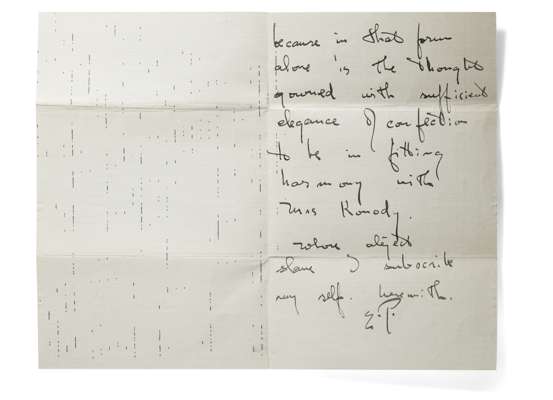 because in that form
alone is the thought
gowned with sufficient
elegance of confection
to be in fitting
harmony with
Miss Konody.
whose abject
slave I subscribe
my self. herewith.
E.P.